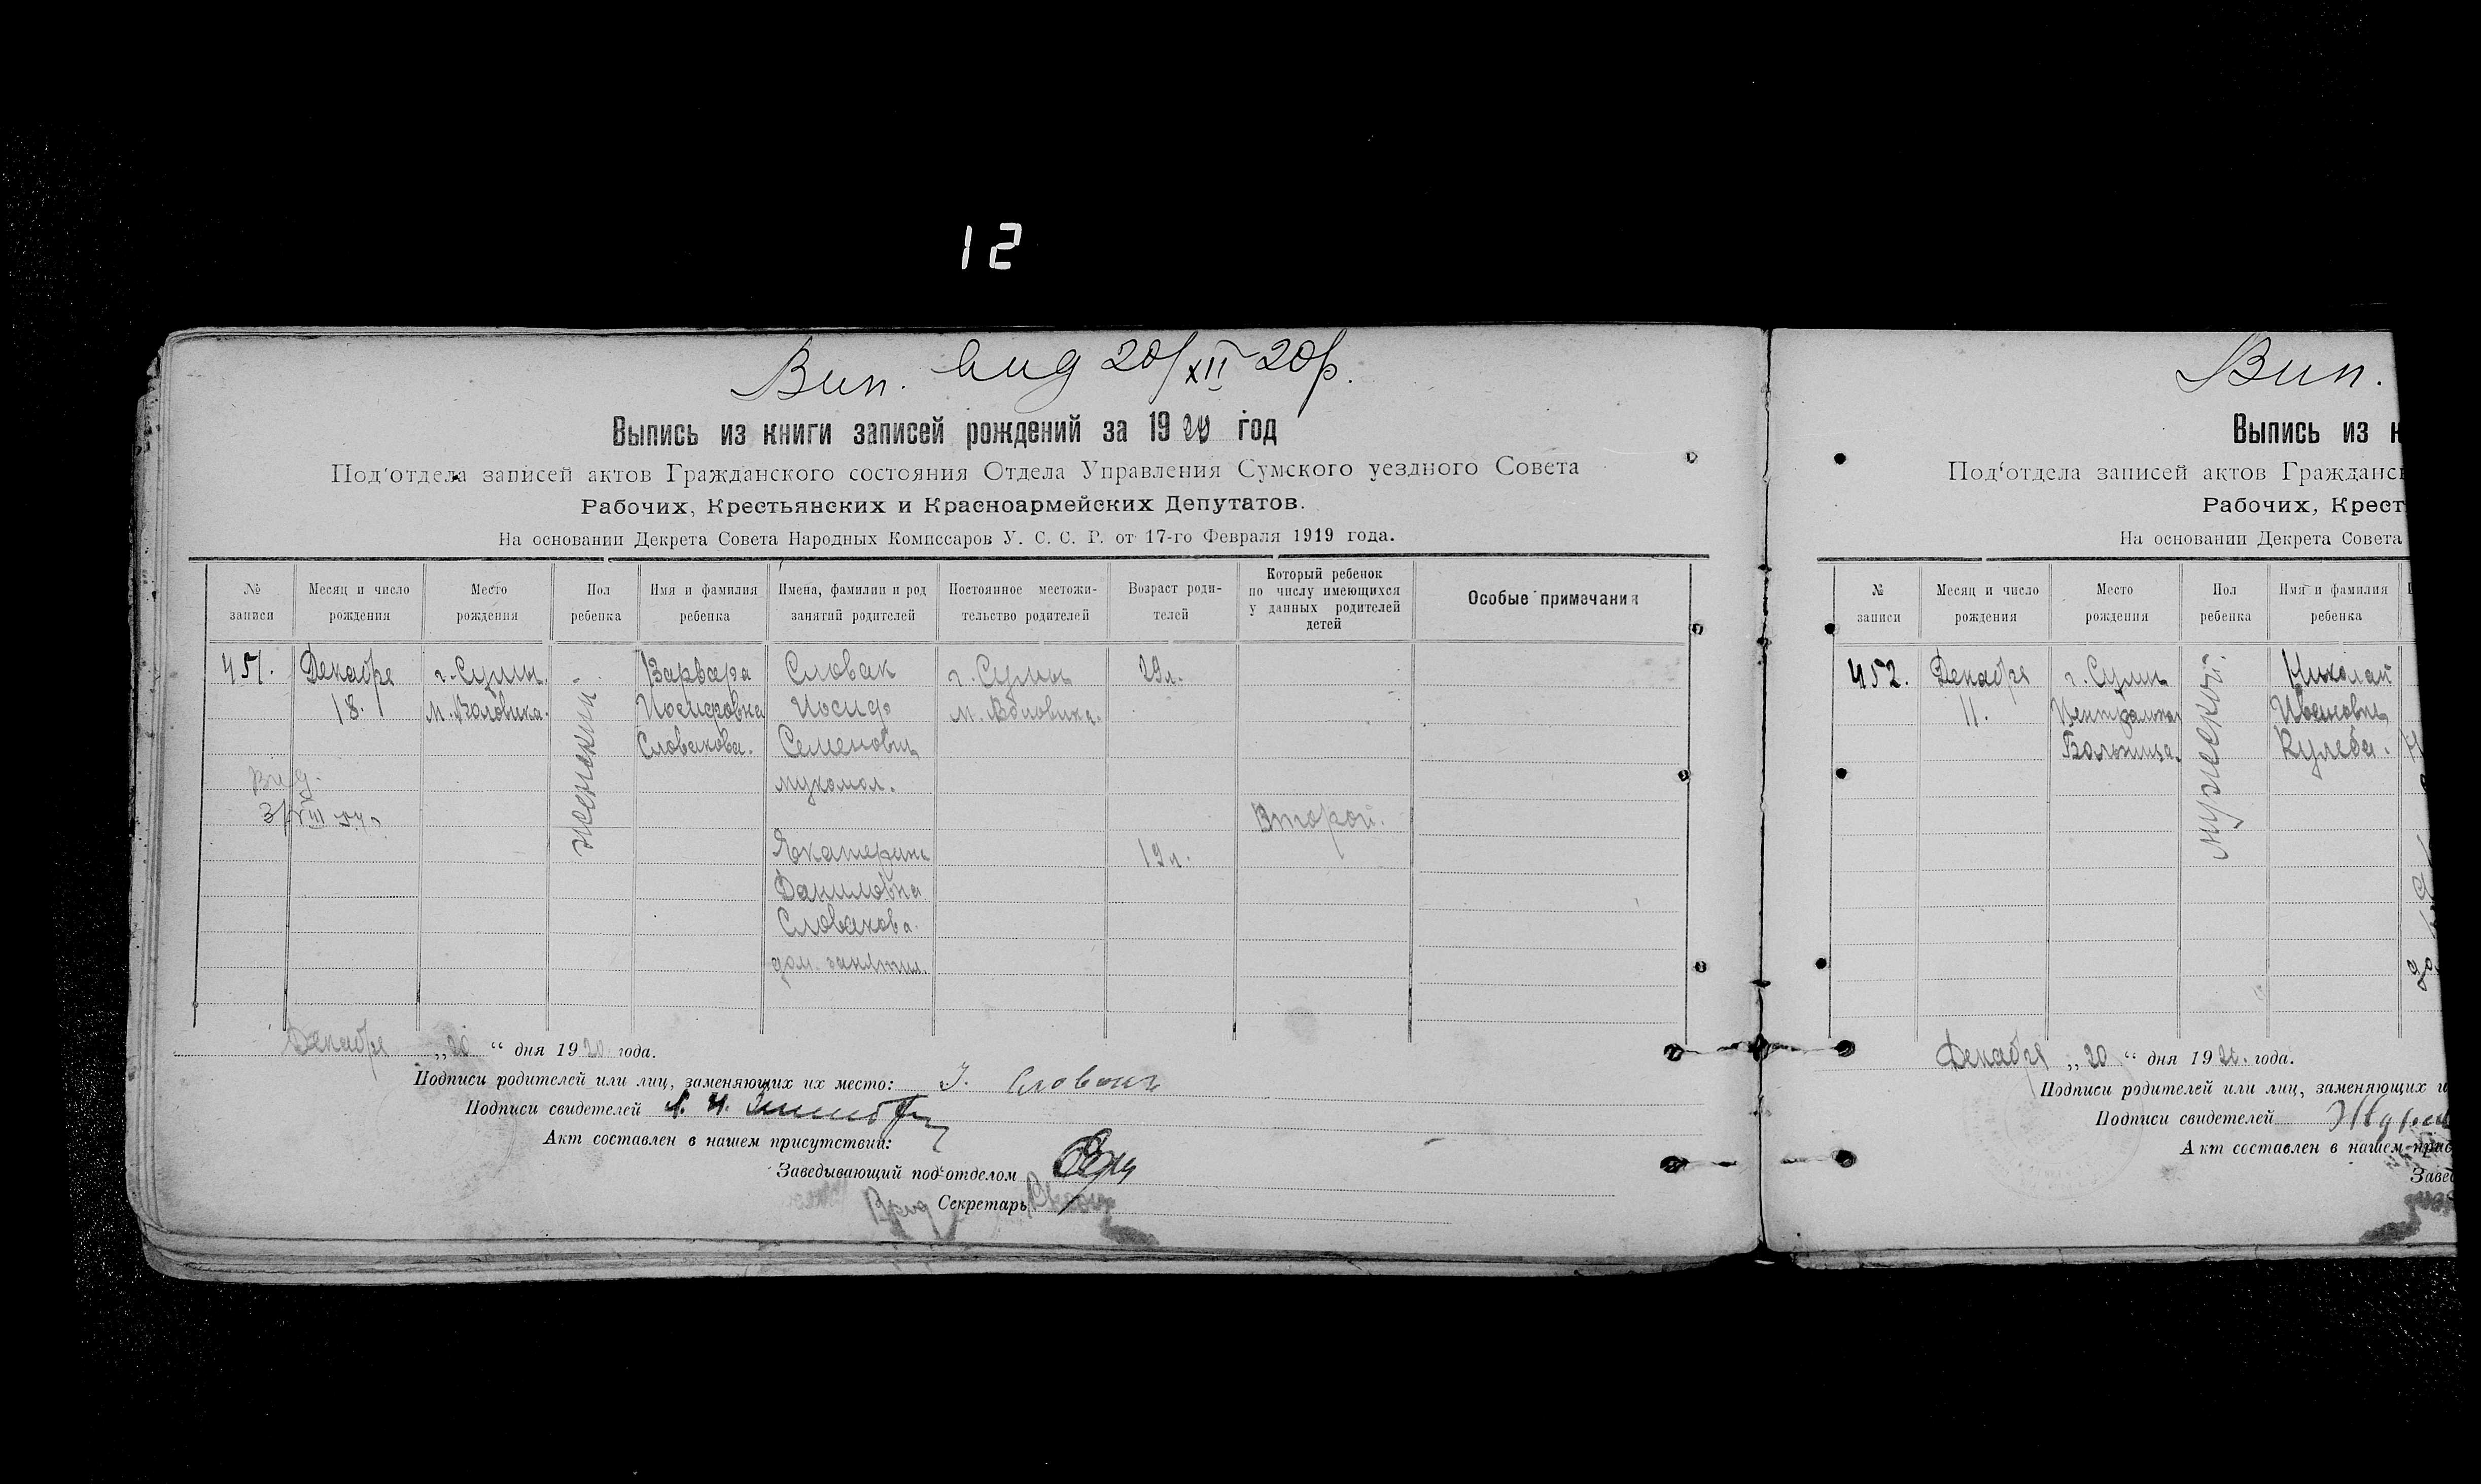 12
Вип. вид 20/XII 20р.
Выпись из книги записей рождений за 1920 год
Под'отдела записей актов Гражданского состояния Отдела Управления Сумского уездного Совета
Рабочих, Крестьянских и Красноармейских Депутатов.
На основании Декрета Совета Народных Комиссаров У. С. С. Р. от 17-го Февраля 1919 года.
№ записи
Месяц и число рождения
Место рождения
Пол ребенка
Имя и фамилия ребенка
Имена, фамилии и род занятий родителей
Постоянное местожительство родителей
Возраст родителей
Который ребенок по числу имеющихся у данных родителей детей
Особые примечания
451.
Декабре
18.
г. Сумы.
женский.
Варвара
Иосифовна
Словакова.
Словак
Иосиф
Семенович
мукомол.
Екатерина
Даниловна
Словакова.
дом. занятия.
г. Сумы
29л.
19л.
Второй.
Вид.
3/VIII
Декабре „20“ дня 1920 года.
Подписи родителей или лиц, заменяющих их место: І. Словакъ
Подписи свидетелей
Акт составлен в нашем присутствии:
Заведывающий под'отделом
Врид Секретарь
Вип.
Выпись из к
Под'отдела записей актов Гражданск
Рабочих, Крест
На основании Декрета Совета
№ записи
Месяц и число рождения
Место рождения
Пол ребенка
Имя и фамилия ребенка
452.
Декабря
11.
г. Сумы
Центральная
Больница.
мужеский.
Николай
Иванович
Кулеба.
Декабря „20“ дня 1920. года.
Подписи родителей или лиц, заменяющих и
Подписи свидетелей
Акт составлен в нашем прис
Завед